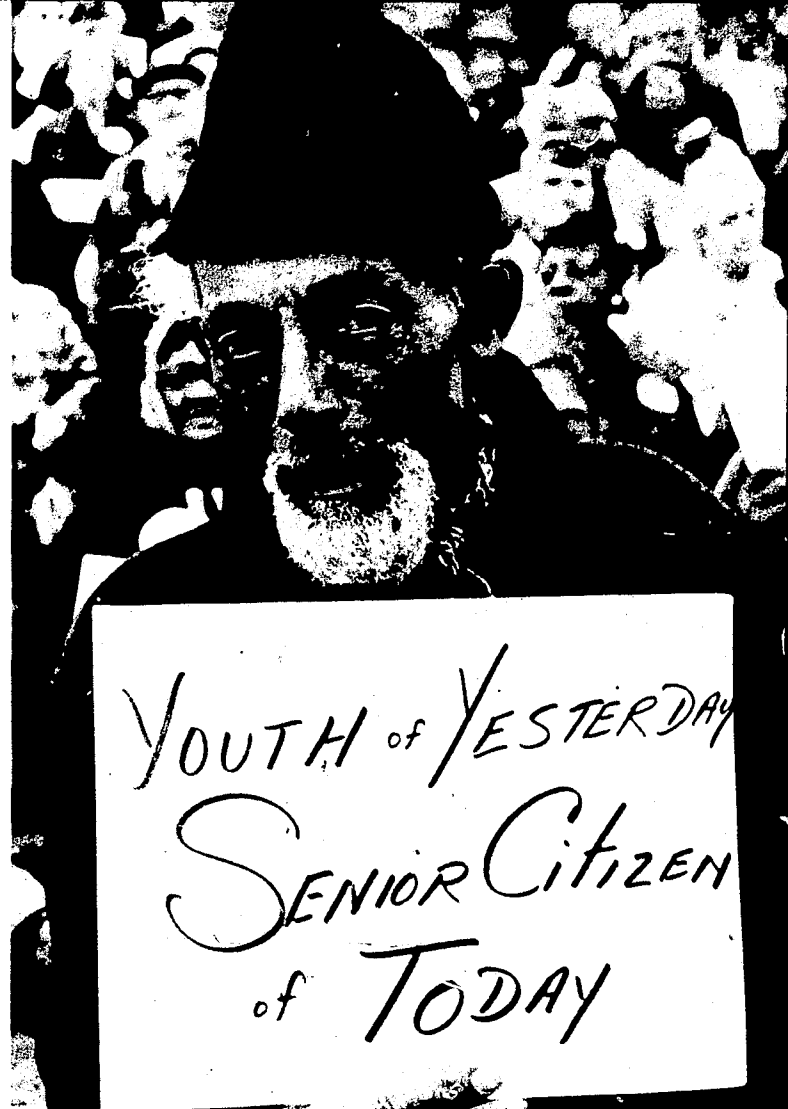 YOUTH of YESTERDAY
SENIOR CitizEN
of TODAY